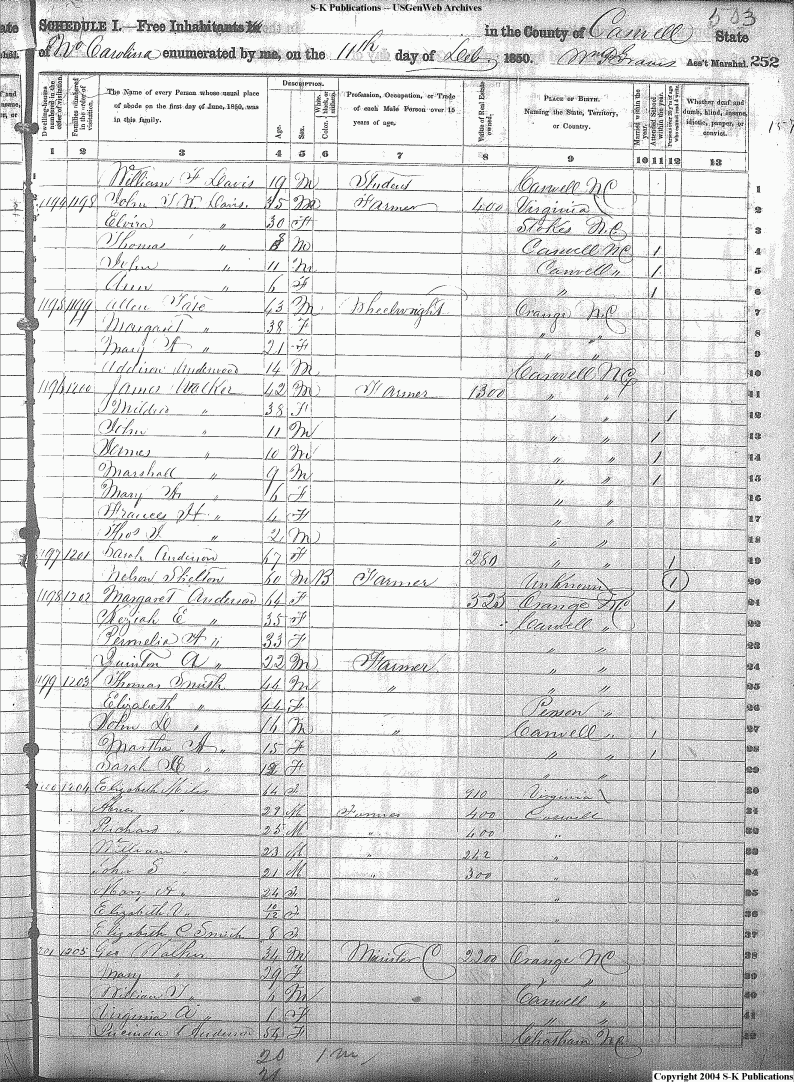 S-K Publications -- USGenWeb Archives
503
SCHEDULE I.—Free Inhabitants in in the County of Caswell State
of No Carolina enumerated by me, on the 11th day of Oct 1850. Ass't Marshal. 252
Dwelling-houses numbered in the order of visitation. Families numbered in the order of visitation. The Name of every Person whose usual place of abode on the first day of June, 1850, was in this family. DESCRIPTION. Age. Sex. Color, White, black, or mulatto. Profession, Occupation, or Trade of each Male Person over 15 years of age. Value of Real Estate owned. PLACE OF BIRTH. Naming the State, Territory, or Country. Married within the year. Attended School within the year. Persons over 20 y'rs of age who cannot read & write. Whether deaf and dumb, blind, insane, idiotic, pauper, or convict.
1 2 3 4 5 6 7 8 9 10 11 12 13
1 William F Davis 19 M Student Caswell NC 1
2 1194 1198 John T W Davis 35 M Farmer 400 Virginia 2
3 Elvira " 30 F Stokes N.C 3
Thomas " M Caswell NC 1 4
John " 11 M Caswell " 1 5
Ann " 6 F " 1 6
1195 1199 Allen Tate 43 M Wheelwright Orange N.C 7
Margaret " 38 F " " 8
Mary " 21 F " " 9
Addison Underwood 14 M Caswell NC 10
1196 1200 James Walker 42 M Farmer 1300 " " 11
Mildred " 38 F " " 1 12
John " 11 M " " 1 13
James " 10 M " " 1 14
Marshall " 9 M " " 1 15
Mary " 6 F " " 16
Frances H " 4 F " " 17
Thos " 2 M " " 18
1197 1201 Sarah Anderson 67 F 280 " " 1 19
Nelson Shelton 60 M B Farmer Unknown 1 20
1198 1202 Margaret Anderson 64 F 325 Orange NC 1 21
Keziah E " 35 F Caswell " 22
Permelia " 33 F " " 23
Quinton A " 22 M Farmer " " 24
1199 1203 Thomas Smith 44 M " " " 25
Elizabeth " 44 F Person " 26
John D " 16 M " Caswell " 1 27
Martha A " 15 F " " 1 28
Sarah " 12 F " " 29
1204 Elizabeth Miles 64 F 910 Virginia 30
" 29 M Farmer 400 Caswell 31
Richard " 25 M " 400 " 32
William " 23 M " 242 " 33
John S " 21 M " 300 " 34
Mary A " 24 F " 35
Elizabeth V " 10/12 F " 36
Elizabeth C Smith 8 F " 37
1201 1205 Geo Walker 34 M Minister 2200 Orange NC 38
Mary " 29 F " " 39
William T " M Caswell " 40
Virginia A " 1 F " " 41
Lucinda Anderson 54 F Chatham NC 42
20 1 m
21
Copyright 2004 S-K Publications